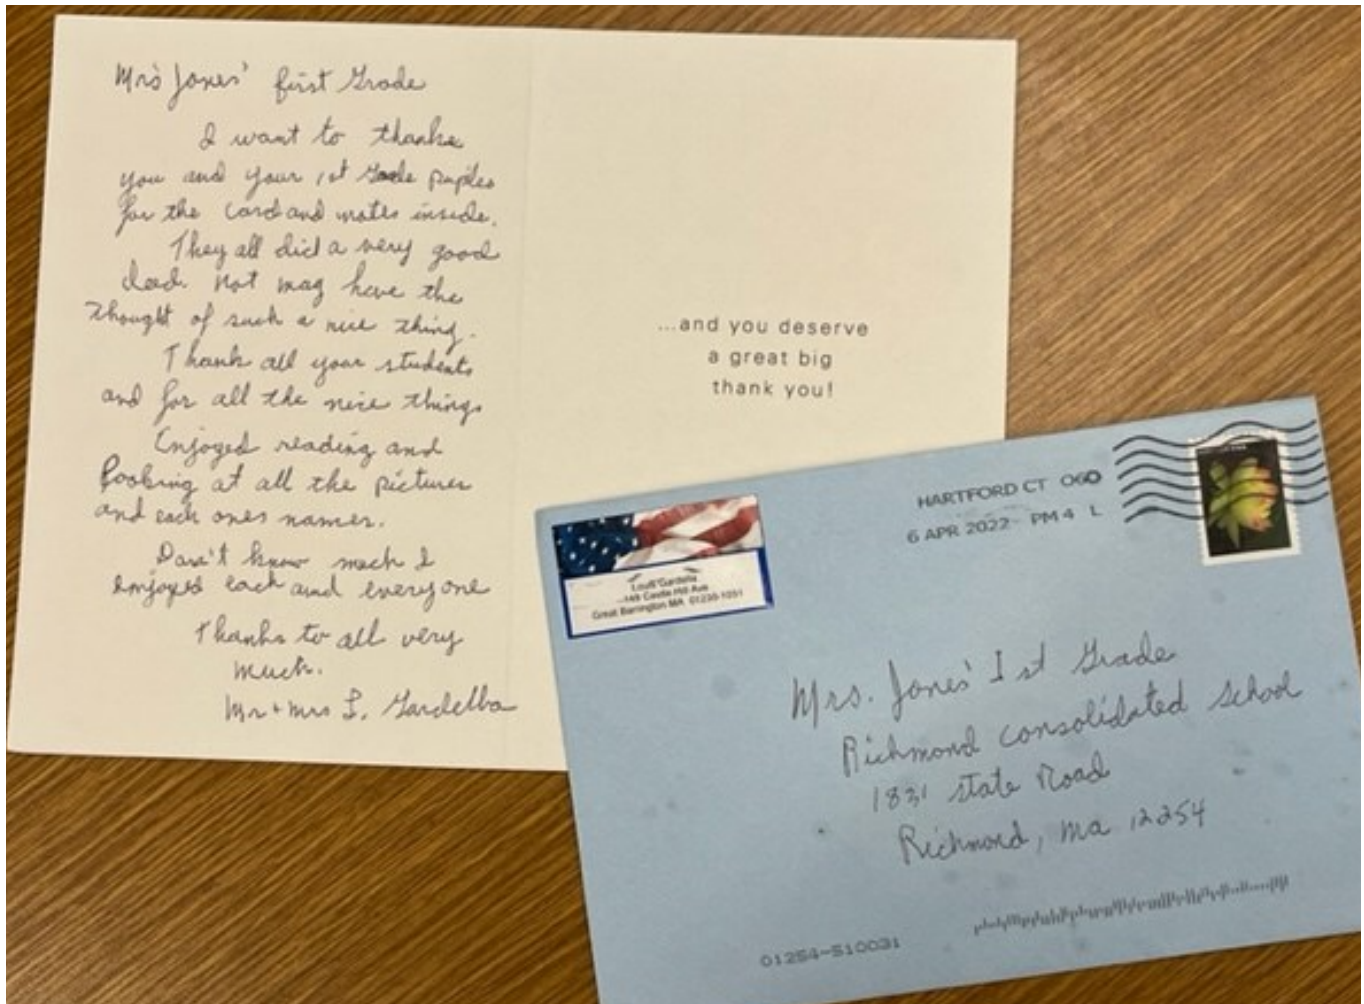 Mrs Jones' first Grade
I want to thanks
you and your 1st Grade puples
for the card and notes inside.
They all did a very good
deed. Not mag have the
thought of such a nice thing.
Thank all your students
and for all the nice things
Enjoyed reading and
looking at all the pictures
and each ones names.
Don't know much I
enjoyed each and everyone
Thanks to all very
much.
Mr + Mrs L. Gardella
...and you deserve
a great big
thank you!
HARTFORD CT 060
6 APR 2022 PM 4 L
Gardella
Castle Hill Ave
Great Barrington MA 01230-1051
Mrs. Jones' 1st Grade
Richmond Consolidated School
1831 State Road
Richmond, Ma 12254
01254-510031